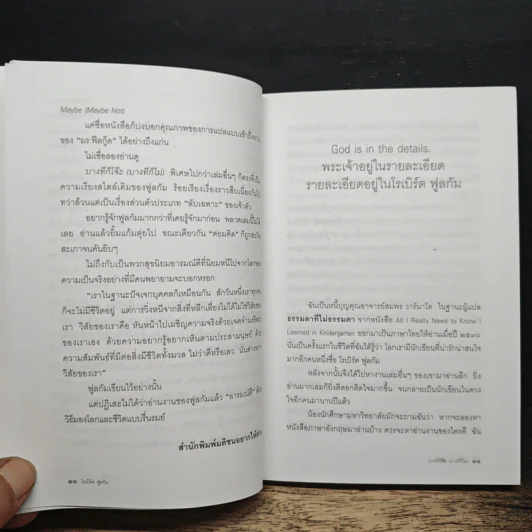 Maybe (Maybe Not)
แค่ชื่อหนังสือก็บ่งบอกคุณภาพของการแปลแบบเข้าถึง
ของ "มร.ฟีลกู๊ด" ได้อย่างถึงแก่น
ไม่เชื่อลองอ่านดู
บางทีก็โจ๊ะ (บางทีก็ไม่) พิเศษไปกว่าเล่มอื่นๆ ก็ตรงที่เป็น
ความเรียงสไตล์เดิมของฟูลกัม ร้อยเรียงเรื่องราวสืบเนื่องกันไป
ทว่าล้วนแต่เป็นเรื่องส่วนตัวประเภท "ลับเฉพาะ" ของเจ้าตัว
อยากรู้จักฟูลกัมมากกว่าที่เคยรู้จักมาก่อน พลาดเล่มนี้ไม่ได้
เลย อ่านแล้วยิ้มแก้มตุ่ยไป ขณะเดียวกัน "ต่อมคิด" ก็ถูกสะกิด
สะเกาจนคันยิบๆ
ไม่ถึงกับเป็นพวกสุขนิยมอารมณ์ดีที่นิยมหนีไปจากโลกของ
ความเป็นจริงอย่างที่มีคนพยายามจะบอกหรอก
"เราในฐานะปัจเจกบุคคลก็เหมือนกัน สักวันหนึ่งเราทุกคน
ก็จะไม่มีชีวิตอยู่ แต่การวิ่งหนีจากสิ่งที่หลีกเลี่ยงไม่ได้ไม่ใช่วิสัยของ
เรา วิสัยของเราคือ หันหน้าไปเผชิญความจริงด้วยเจตจำนงอิสระ
ของเราเอง ด้วยความอยากรู้อยากเห็นตามประสามนุษย์ ด้วย
ความสัมพันธ์ที่มีต่อสิ่งมีชีวิตทั้งมวล ไม่ว่าดีหรือเลว นั่นต่างหาก
วิสัยของเรา"
ฟูลกัมเขียนไว้อย่างนั้น
แต่ปฏิเสธไม่ได้ว่าอ่านงานของฟูลกัมแล้ว "อารมณ์ดี"
วิธีมองโลกและชีวิตแบบรื่นรมย์
สำนักพิมพ์มติชนอยากให้อ่าน
๑๐ โรเบิร์ต ฟูลกัม
God is in the details.
พระเจ้าอยู่ในรายละเอียด
รายละเอียดอยู่ในโรเบิร์ต ฟูลกัม
ฉันเป็นหนี้บุญคุณอาจารย์สมพร วาร์นาโด ในฐานะผู้แปล
ธรรมดาที่ไม่ธรรมดา จากหนังสือ All I Really Need to Know I
Learned in Kindergarten ออกมาเป็นภาษาไทยให้อ่านเมื่อปี ๒๕๓๖
นั่นเป็นครั้งแรกในชีวิตที่ฉันได้รู้ว่า โลกเรามีนักเขียนที่น่ารักน่าสนใจ
มากอีกคนหนึ่งชื่อ โรเบิร์ต ฟูลกัม
หลังจากนั้นจึงได้ไปหางานเล่มอื่นๆ ของเขามาอ่านอีก ยิ่ง
อ่านมากเล่มก็ยิ่งติดอกติดใจมากขึ้น จนกลายเป็นนักเขียนในดวง
ใจอีกคนมานานปีแล้ว
น้องนักศึกษามหาวิทยาลัยมักจะถามฉันว่า หากจะลองหา
หนังสือภาษาอังกฤษมาอ่านบ้าง ควรจะหาอ่านงานของใครดี ฉัน
๑๑